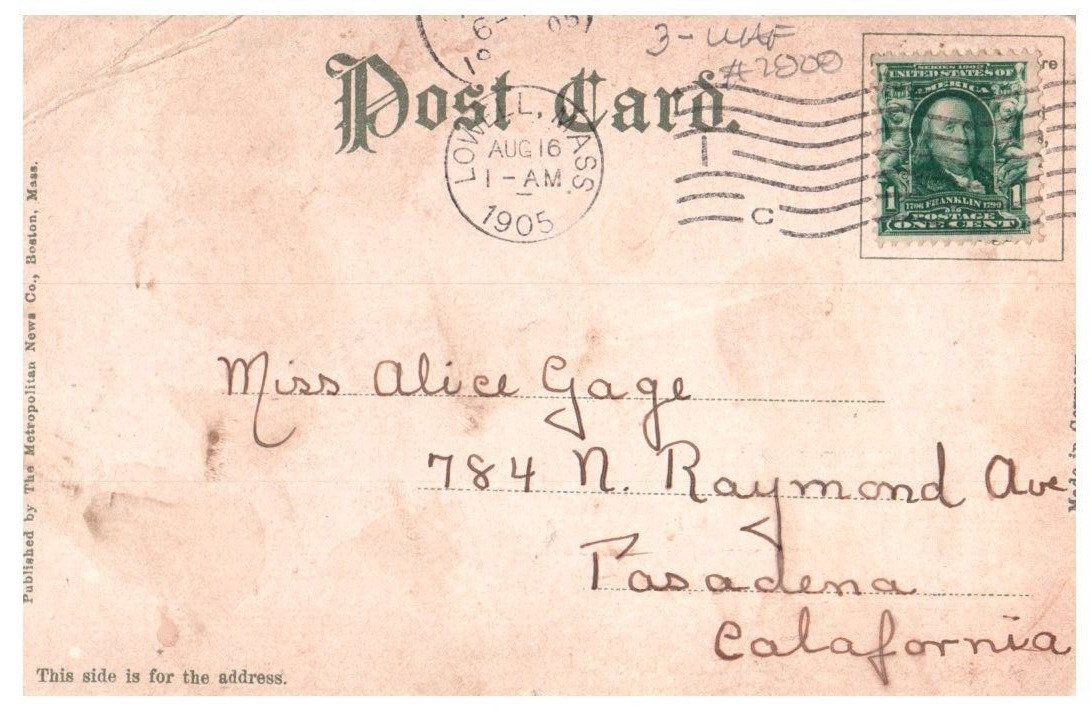 6- 05
3-UAF
#2000
Post Card.
LOWELL, MASS.
AUG 16
1-AM
1905
C
SERIES 1902
UNITED STATES OF
AMERICA
1706 FRANKLIN 1790
1 1
POSTAGE
ONE CENT
re
Miss Alice Gage
784 N. Raymond Ave
Pasadena
Calafornia
Published by The Metropolitan News Co., Boston, Mass.
Made in Germany
This side is for the address.